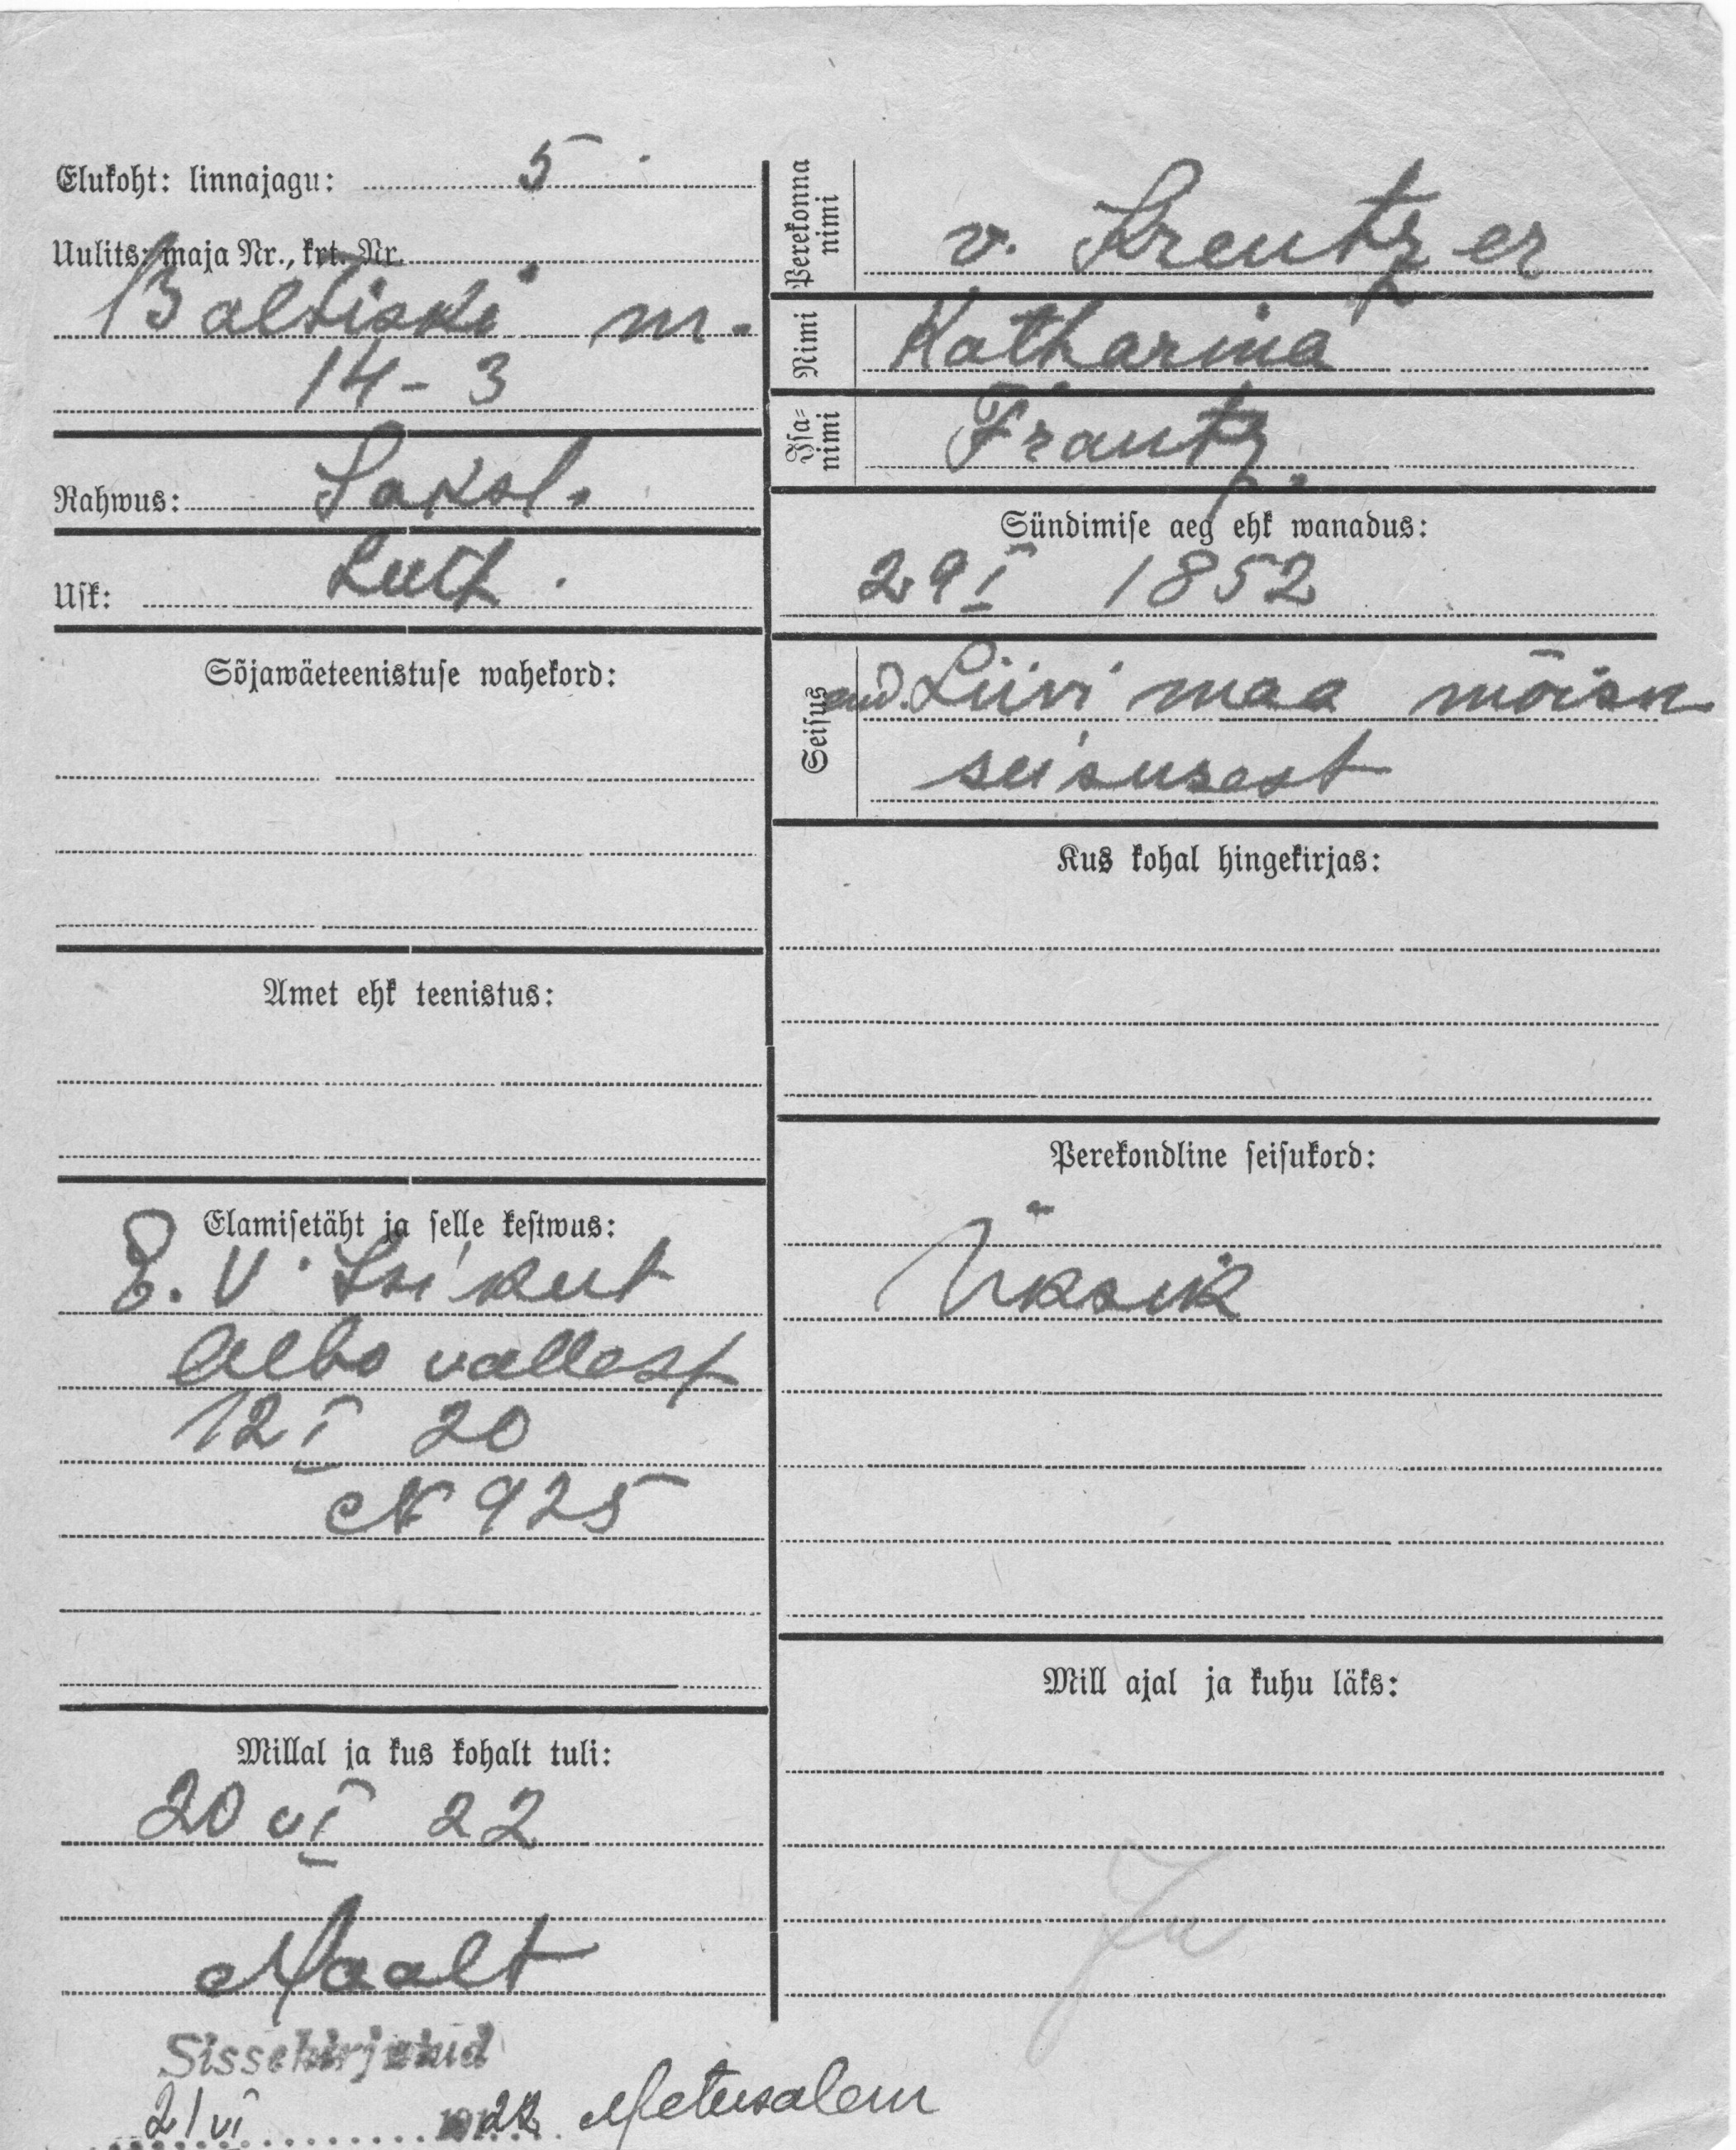 Elukoht: linnajagu: 5
Uulits: maja Nr., krt. Nr.
Baltiski m.
14-3
Rahwus: Saksl.
Usk: Luth.
Sõjawäeteenistuse wahekord:
Amet ehk teenistus:
Elamisetäht ja selle kestwus:
E. V. Isikut
vallast
12 I 20
N 925
Millal ja kus kohalt tuli:
20 VI 22
Maalt
Sissekirjutud
21 VI 1922 Metusalem
Perekonna nimi v. Kreutzer
Nimi Katharina
Isa-nimi Frantz.
Sündimise aeg ehk wanadus:
29 I 1852
Seisus end. Liivi maa mõisn
seisusest
Kus kohal hingekirjas:
Perekondline seisukord:
Üksik
Mill ajal ja kuhu läks: